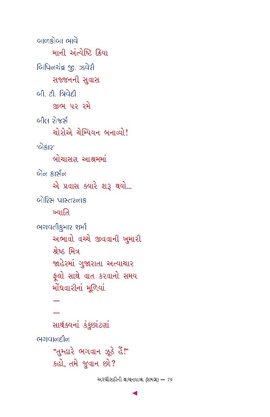 બાળકોબા ભાવે
માની અંત્યેષ્ટિ ક્રિયા
બિપિનચંદ્ર જી. ઝવેરી
સજ્જનની સુવાસ
બી. ટી. ત્રિવેદી
જીભ પર રમે
બીલ રોજર્સ
ચોરોએ ચેમ્પિયન બનાવ્યો!
'બેકાર'
બોચાસણ આશ્રમમાં
બેન કાર્સન
એ પ્રવાસ ક્યારે શરૂ થવો...
બોરિસ પાસ્તરનાક
ખ્યાતિ
ભગવતીકુમાર શર્મા
અભાવો વચ્ચે જીવવાની ખુમારી
શ્રેષ્ઠ મિત્ર
જાહેરમાં ગુજારાતા અત્યાચાર
ફૂલો સાથે વાત કરવાનો સમય
મોંઘવારીનાં મૂળિયાં
—
—
સાર્થક્યનાં કંકુછાંટણાં
ભગવાનદીન
"તુમ્હારે ભગવાન ઝૂઠે હૈં!"
કહો, તમે જુવાન છો?
અરધીસદીની વાચનયાત્રા (સમગ્ર) — 79